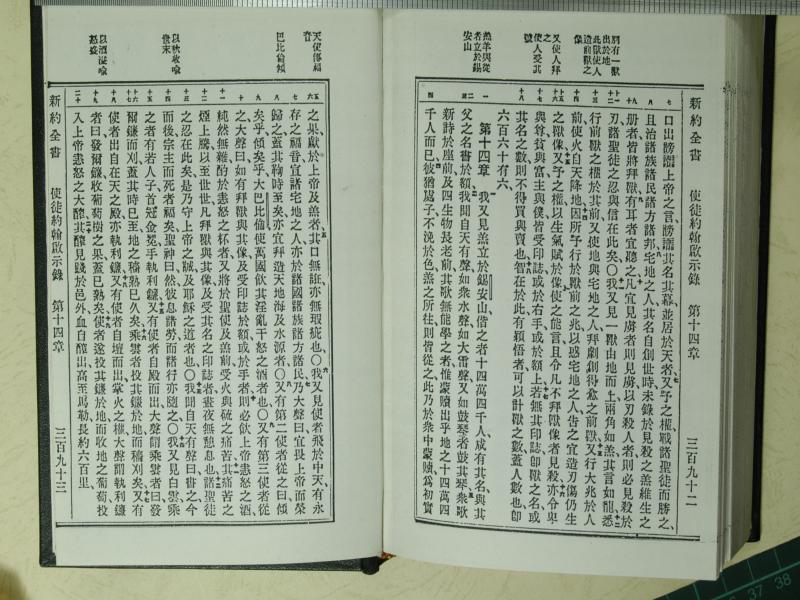 新約全書 使徒約翰啟示錄 第十四章 三百九十二
別有一獸
出於地
此獸使人
造前獸之
像
又使人拜
之
使人受其
號
羔羊與從
者立於錫
安山
口出謗讟上帝之言謗讟其名其幕並居於天者又予之權戰諸聖徒而勝之
且治諸族諸民諸方諸邦宅地之人其名自創世時未錄於見殺之羔維生之
册者皆將拜獸有耳者宜聽之凡宜見虜者則見虜以刃殺人者則必見殺於
刃諸聖徒之忍與信在此矣○我又見一獸由地而上兩角如羔其言如龍悉
行前獸之權於其前又使地與宅地之人拜劇創得愈之前獸又行大兆於人
前使火自天降地因所予行於獸前之兆以惑宅地之人告之宜造刃傷仍生
之獸像又予之權以生氣賦於像使之能言且令凡不拜獸像者見殺亦令卑
與尊貧與富主與僕皆受印誌或於右手或於額上若無其印誌卽獸之名或
其名之數則不得買與賣也智在於此有穎悟者可以計獸之數蓋人數也卽
六百六十有六
第十四章 我又見羔立於錫安山偕之者十四萬四千人咸有其名與其
父之名書於額我聞自天有聲如衆水聲如大雷聲又如鼓琴者鼓其琴衆歌
新詩於座前及四生物長老前其歌無能學之者惟蒙贖出乎地之十四萬四
千人而已彼猶處子不浼於色羔之所往則皆從之此乃於衆中蒙贖爲初實
新約全書 使徒約翰啟示錄 第十四章 三百九十三
天使傳福
音
巴比倫傾
以秋收喻
世末
以酒醡喻
怒盛
之果獻於上帝及羔者其口無誑亦無瑕疵也○我又見使者飛於中天有永
存之福音宣諸宅地之人亦於諸國諸族諸方諸民乃大聲曰宜畏上帝而榮
歸之蓋其鞫時至矣亦宜拜造天地海及水源者○又有第二使者從之曰傾
矣乎傾矣乎大巴比倫使萬國飲其淫亂干怒之酒者也○又有第三使者從
之大聲曰如有拜獸與其像及受印誌於額或於手者則必飲上帝恚怒之酒
純然無雜酌於恚怒之杯者又將於聖使及羔前受火與硫之痛苦其痛苦之
煙上騰以至世世凡拜獸與其像及受其名之印誌者晝夜無憩息也諸聖徒
之忍在此矣是乃守上帝之誡及耶穌之道者也○我聞自天有聲曰書之今
而後宗主而死者福矣聖神曰然彼息諸勞而諸行亦隨之○我又見白雲乘
之者有若人子首冠金冕手執利鐮又有使者自殿而出大聲謂乘雲者曰發
爾鐮而刈蓋其時已至地之穡熟已久矣乘雲者投其鐮於地而穡刈矣又有
使者出自在天之殿亦執利鐮又有使者自壇而出掌火之權大聲謂執利鐮
者曰發爾鐮收葡萄樹之果蓋已熟矣使者遂投其鐮於地而收地之葡萄投
入上帝恚怒之大醡其醡見踐於邑外血自醡出高至馬勒長約六百里